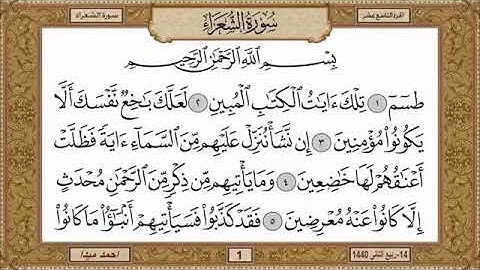 الجزء التاسع عشر
سُورَةُ الشُّعَرَاءِ
سورة الشعراء
بِسْمِ ٱللَّهِ ٱلرَّحْمَٰنِ ٱلرَّحِيمِ
طسٓمٓ ١ تِلْكَ ءَايَٰتُ ٱلْكِتَٰبِ ٱلْمُبِينِ ٢ لَعَلَّكَ بَٰخِعٌ نَّفْسَكَ أَلَّا
يَكُونُوا۟ مُؤْمِنِينَ ٣ إِن نَّشَأْ نُنَزِّلْ عَلَيْهِم مِّنَ ٱلسَّمَآءِ ءَايَةً فَظَلَّتْ
أَعْنَٰقُهُمْ لَهَا خَٰضِعِينَ ٤ وَمَا يَأْتِيهِم مِّن ذِكْرٍ مِّنَ ٱلرَّحْمَٰنِ مُحْدَثٍ
إِلَّا كَانُوا۟ عَنْهُ مُعْرِضِينَ ٥ فَقَدْ كَذَّبُوا۟ فَسَيَأْتِيهِمْ أَنۢبَٰٓؤُا۟ مَا كَانُوا۟
14-ربيع الثاني 1440
1
احمد